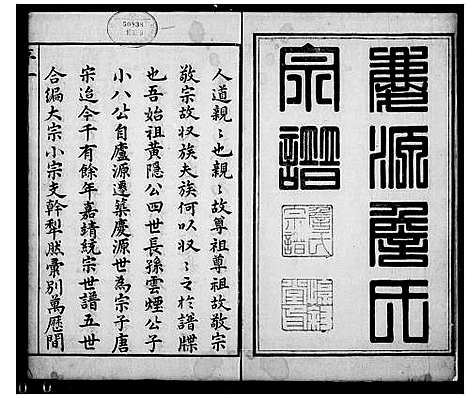 婺源詹氏
宗譜
詹氏
宗譜
人道親〻也親〻故尊祖尊祖故敬宗
敬宗故収族夫族何以収〻之於譜牒
也吾始祖黄隱公四世長孫雲煙公子
小八公自廬源遷築慶源世為宗子唐
宋迨今千有餘年嘉靖統宗世譜五世
合編大宗小宗支幹犁然彙別萬歷間